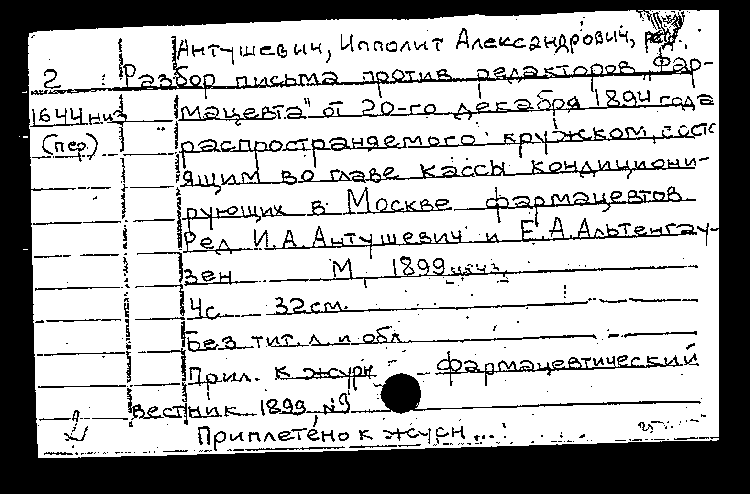 Антушевич, Ипполит Александрович, ред.
2 Разбор письма против редакторов „Фар-
1644низ мацевта" от 20-го декабря 1894 года
(пер.) распространяемого кружком, состо
ящим во главе кассы кондициони-
рующих в Москве фармацевтов
Ред И.А.Антушевич и Е.А.Альтенгау-
зен М, 1899 ценз.
4с 32см.
Без тит. л. и обл
Прил. к журн Фармацевтический
вестник 1899, №9
2 Приплетено к журн...